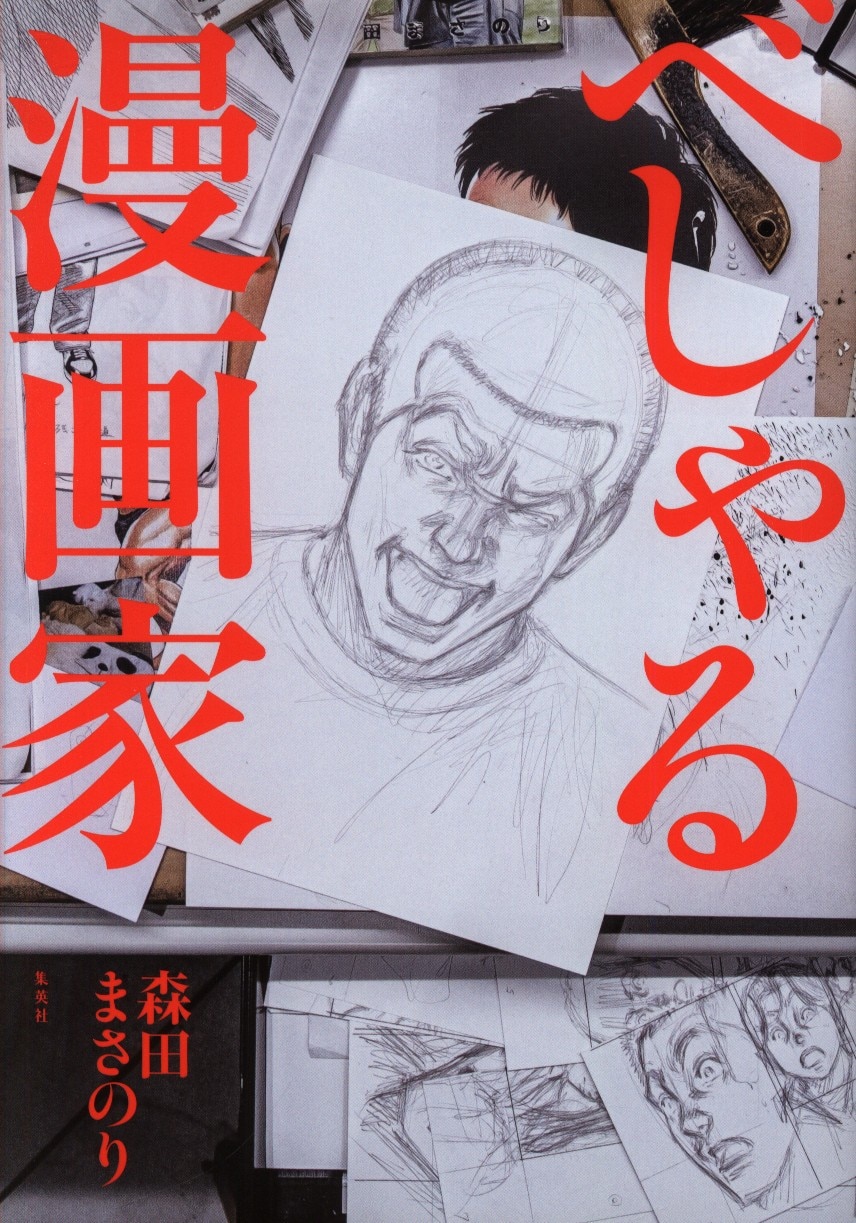 べしゃる
漫画家
森田
まさのり
集英社
田まさのり